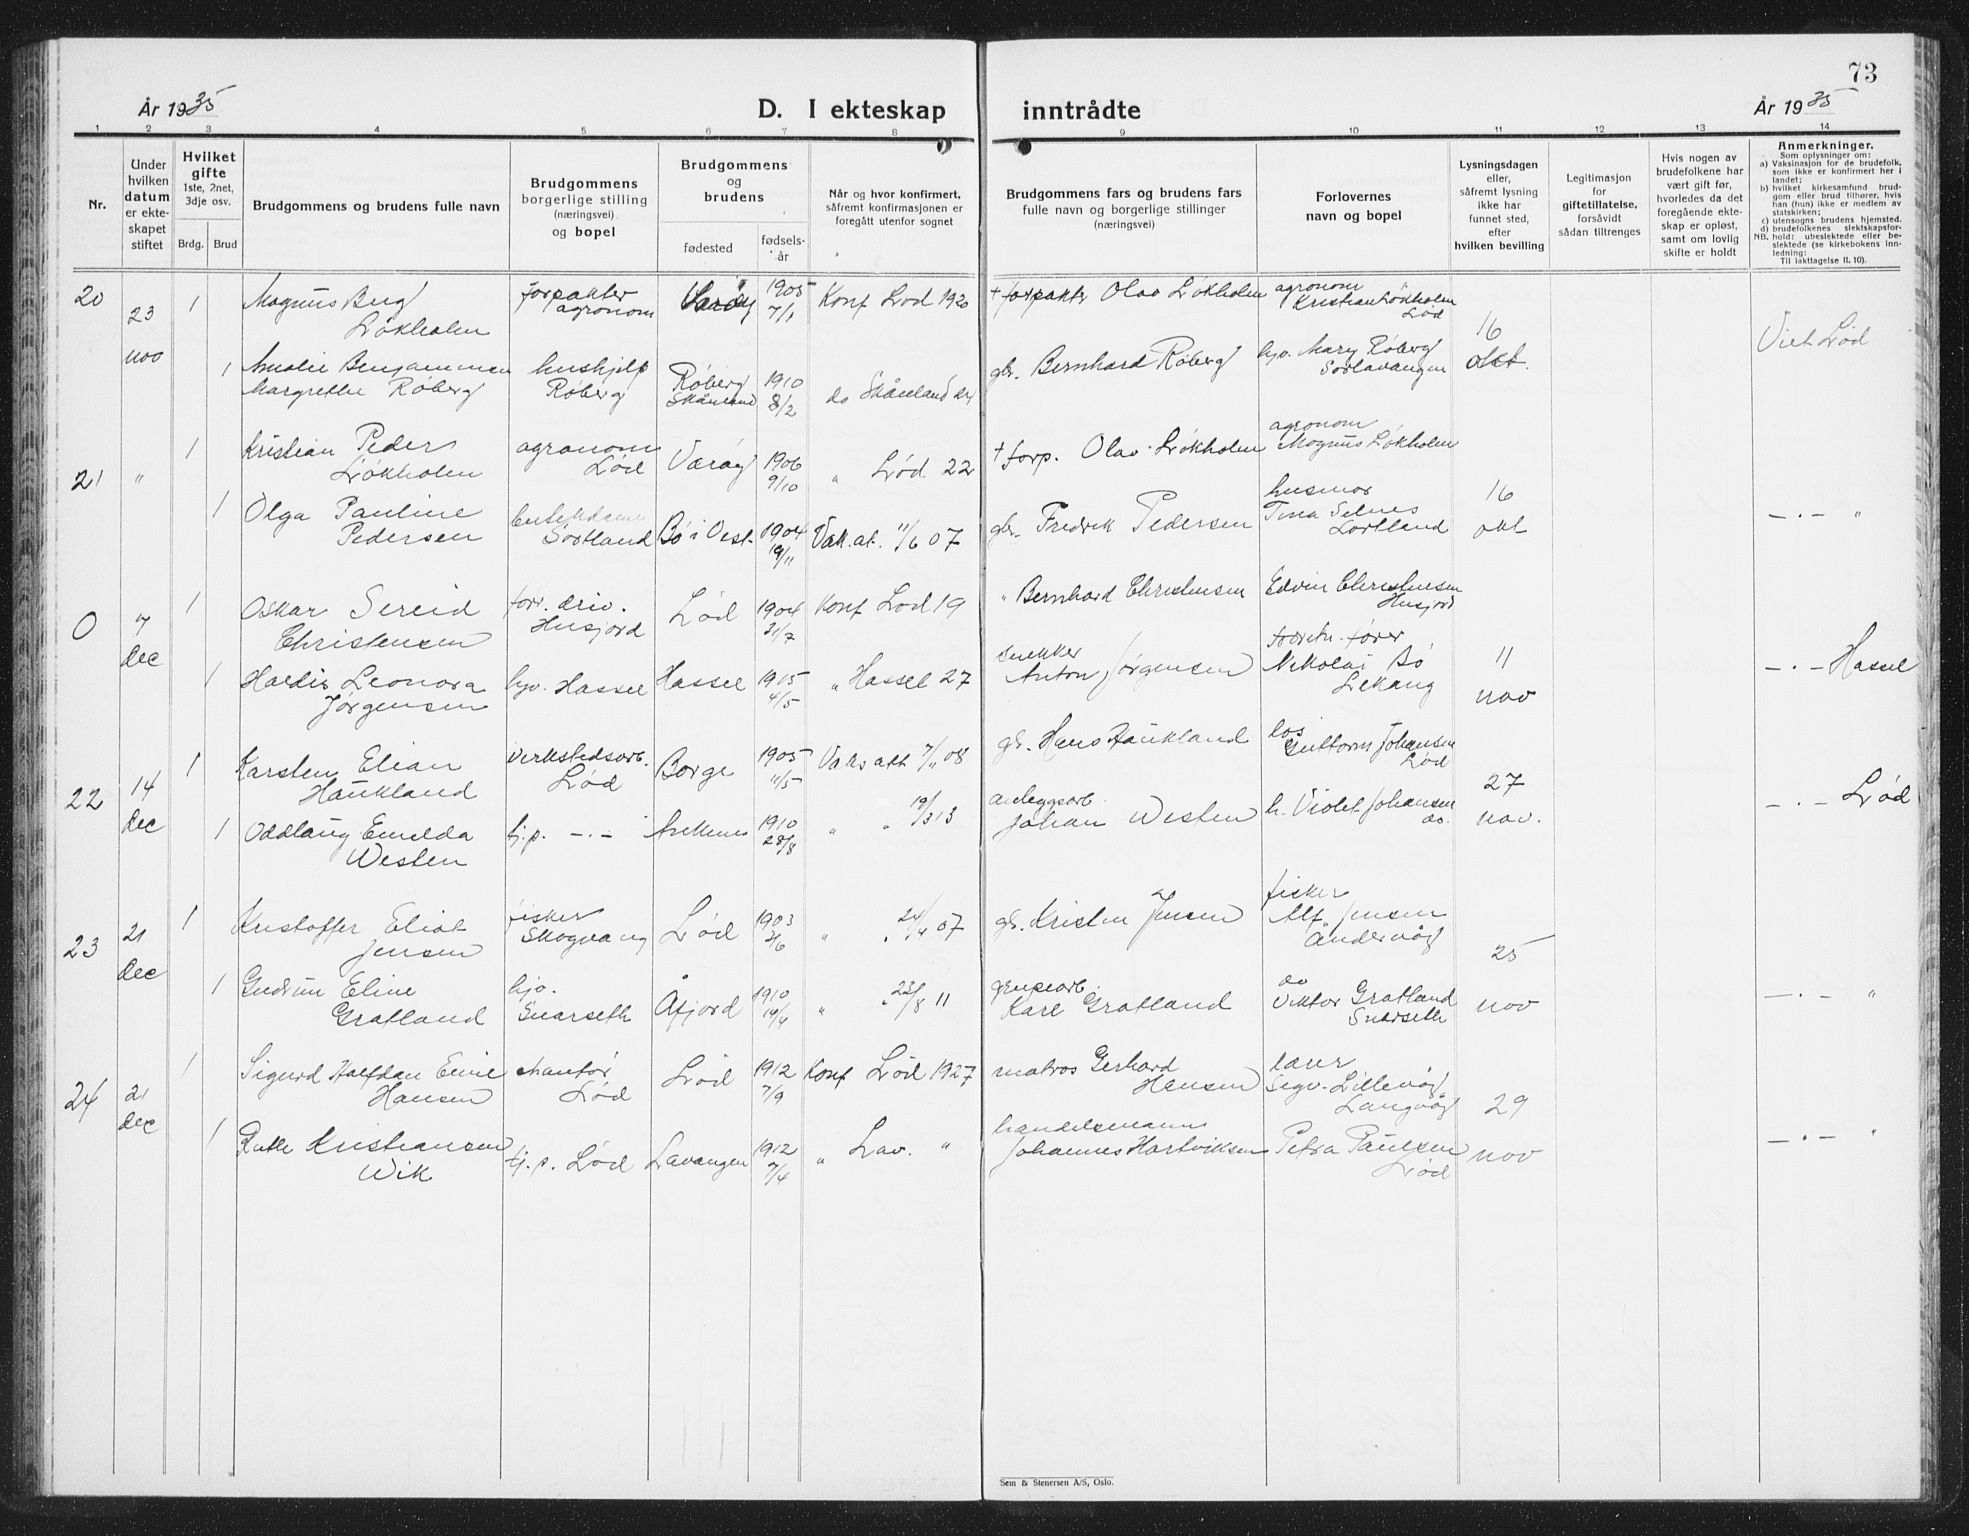 73
År 1935
D. I ekteskap inntrådte
År 1935
1 2 3 4 5 6 7 8 9 10 11 12 13 14
Nr.
Under hvilken datum er ekte-skapet stiftet
Hvilket gifte
1ste, 2net, 3dje osv.
Brdg. Brud
Brudgommens og brudens fulle navn
Brudgommens borgerlige stilling (næringsvei) og bopel
Brudgommens og brudens
fødested
fødsels-år
Når og hvor konfirmert, såfremt konfirmasjonen er foregått utenfor sognet
Brudgommens fars og brudens fars
fulle navn og borgerlige stillinger
(næringsvei)
Forlovernes
navn og bopel
Lysningsdagen
eller,
såfremt lysning
ikke har
funnet sted,
efter
hvilken bevilling
Legitimasjon
for
giftetillatelse,
forsåvidt
sådan tiltrenges
Hvis nogen av
brudefolkene har
vært gift før,
hvorledes da det
foregående ekte-
skap er opløst,
samt om lovlig
skifte er holdt
Anmerkninger.
Som oplysninger om:
a) Vaksinasjon for de brudefolk,
som ikke er konfirmert her i
landet;
b) hvilket kirkesamfund brud-
gom eller brud tilhører, hvis
han (hun) ikke er medlem av
statskirken;
c) utensogns brudens hjemsted.
d) brudefolkenes slektskapsfor-
hold: ubeslektede eller be-
slektede (se kirkebokens inn-
ledning:
Til iakttagelse II. 10).
20 23 nov 1 Magnus Berg Løkholm forpakter agronom Værøy 1905 7/1 Konf Lød 1920 + forpakter Olav Løkholm agronom Kristian Løkholm Lød 16 okt. Viet Lød
1 Amalie Benjammen Margrethe Røberg hushjelp Røberg Røberg Skånland 1910 8/2 do Skånland 24 gb. Bernhard Røberg hjv. Mary Røberg Sørlavangen
21 " 1 Kristian Peder Løkholm agronom Lød Værøy 1906 9/10 " Lød 22 + forp. Olav Løkholm agronom Magnus Løkholm 16 okt — . — "
1 Olga Pauline Pedersen Sortland Bø i Vest. 1904 19/11 Vak.at. 11/6 07 gb. Fredrik Pedersen husmor Tina Selnes Sortland
0 7 dec 1 Oskar Sereid Christensen forr. driv. Husjord Lød 1904 31/7 Konf Lød 19 " Bernhard Christensen Edvin Christensen Husjord 11 nov — . — Hassel
1 Haldis Leonora Jørgensen hjv. Hassel Hassel 1905 4/5 " Hassel 27 snekker Anton Jørgensen forretn. fører Nikolai Bø Lekang
22 14 dec 1 Karsten Elian Haukland verkstedsarb. Lød Borge 1905 11/5 Vaks att 7/11 08 gb. Hans Haukland los Guttorm Johansen Lød 27 nov. — . — Lød
1 Oddlaug Emelda Westen tj.p. — . — Ankenes 1910 28/8 " " 19/3 13 anleggsarb. Johan Westen h. Violet Johansen do.
23 21 dec 1 Kristoffer Eliot Jensen fisker Skogvang Lød 1903 2/6 " " 24/4 07 gb. Kristen Jensen fisker Alf. Jensen Åndervåg 25 nov — . — "
1 Gudrun Eline Gratland hjv. Snarseth Åfjord 1910 14/4 " " 23/8 11 grubearb. Karl Gratland do Viktor Gratland Snarseth
24 21 dec 1 Sigurd Halfdan Emil Hansen Lød Lød 1912 7/9 Konf Lød 1927 matros Gerhard Hansen lærer Sigv. Lillevåg Langvåg 29 nov — . — "
1 Ruth Kristiansen Wik tj.p. Lød Lavangen 1912 7/4 " Lav. " handelsmann Johannes Hartviksen Petra Paulsen Lød
Sem & Stenersen A/S, Oslo.